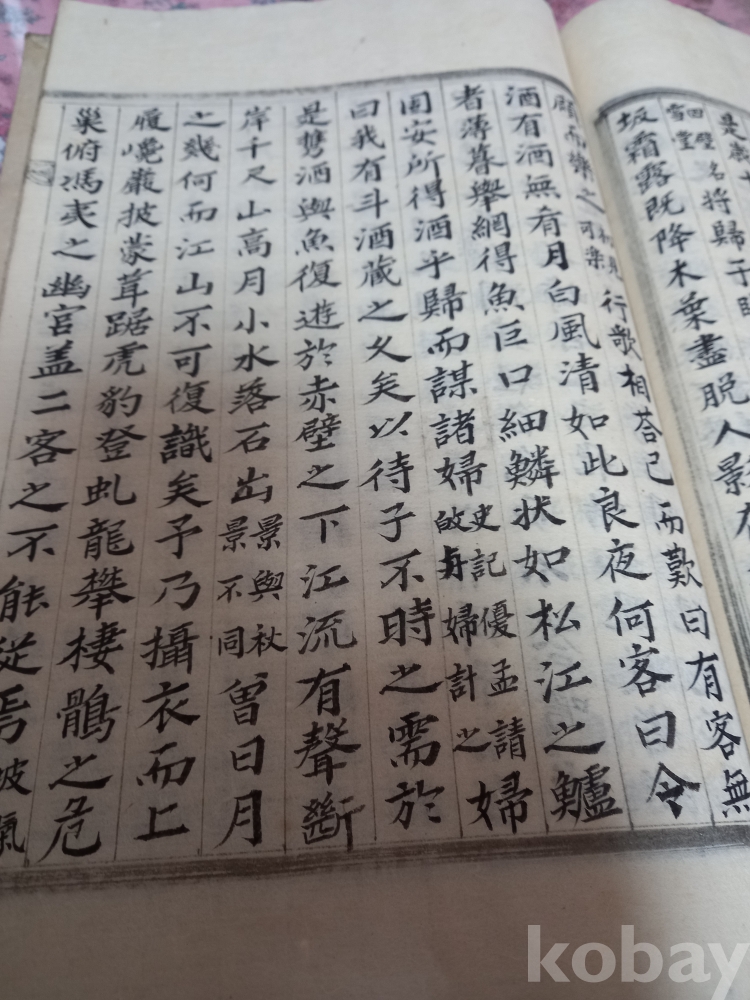 是歲十
名將歸于
坂霜露既降木葉盡脫人景
顧而樂之可樂行歌相荅已而歎曰有客無
酒有酒無肴月白風清如此良夜何客曰今
者薄暮舉網得魚巨口細鱗状如松江之鱸
固安所得酒乎歸而謀諸婦史記優孟請婦計之婦
曰我有斗酒藏之久矣以待子不時之需於
是攜酒與魚復遊於赤壁之下江流有聲斷
岸千尺山高月小水落石出景與秋景不同曾日月
之幾何而江山不可復識矣予乃攝衣而上
履巉巖披蒙茸踞虎豹登虬龍攀棲鶻之危
巢俯馮夷之幽宮盖二客之不能從焉坡氣
kobay